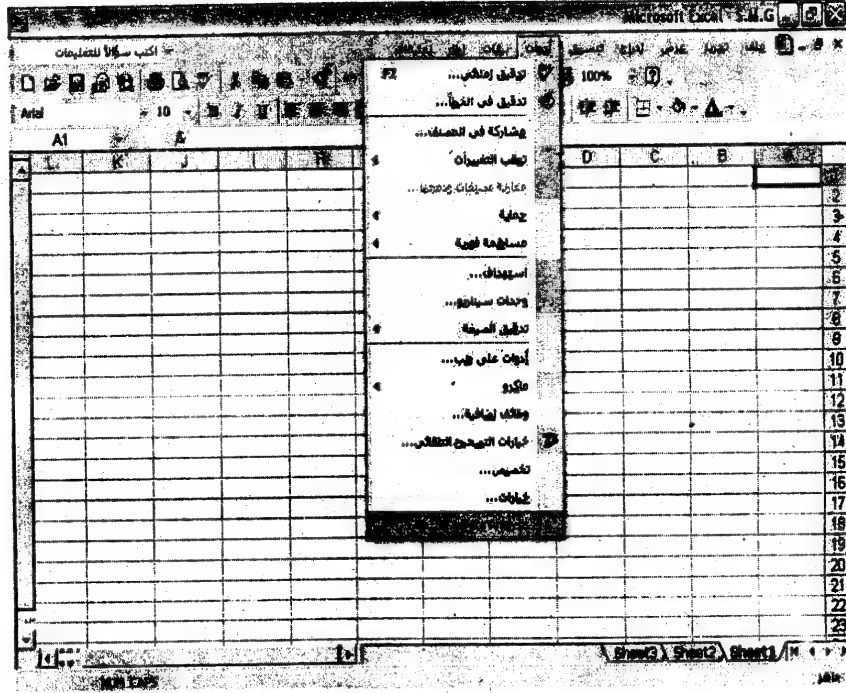 Microsoft Excel - S.M.G
اكتب سؤالاً للتعليمات
ملف تحرير عرض إدراج تنسيق أدوات
100%
Arial 10
A1
تدقيق إملائي... F7
تدقيق في الخطأ...
مشاركة في المصنف...
تعقب التغييرات
مقارنة مصنفات ودمجها...
حماية
مساهمة فورية
استهداف...
وحدات سيناريو...
تدقيق الصيغة
أدوات على ويب...
ماكرو
وظائف إضافية...
خيارات التصحيح التلقائي...
تخصيص...
خيارات...
L K J I H D C B A
2
3
4
5
6
7
8
9
10
11
12
13
14
15
16
17
18
19
20
21
22
23
Sheet3 Sheet2 Sheet1
NUM CAPS
جاهز